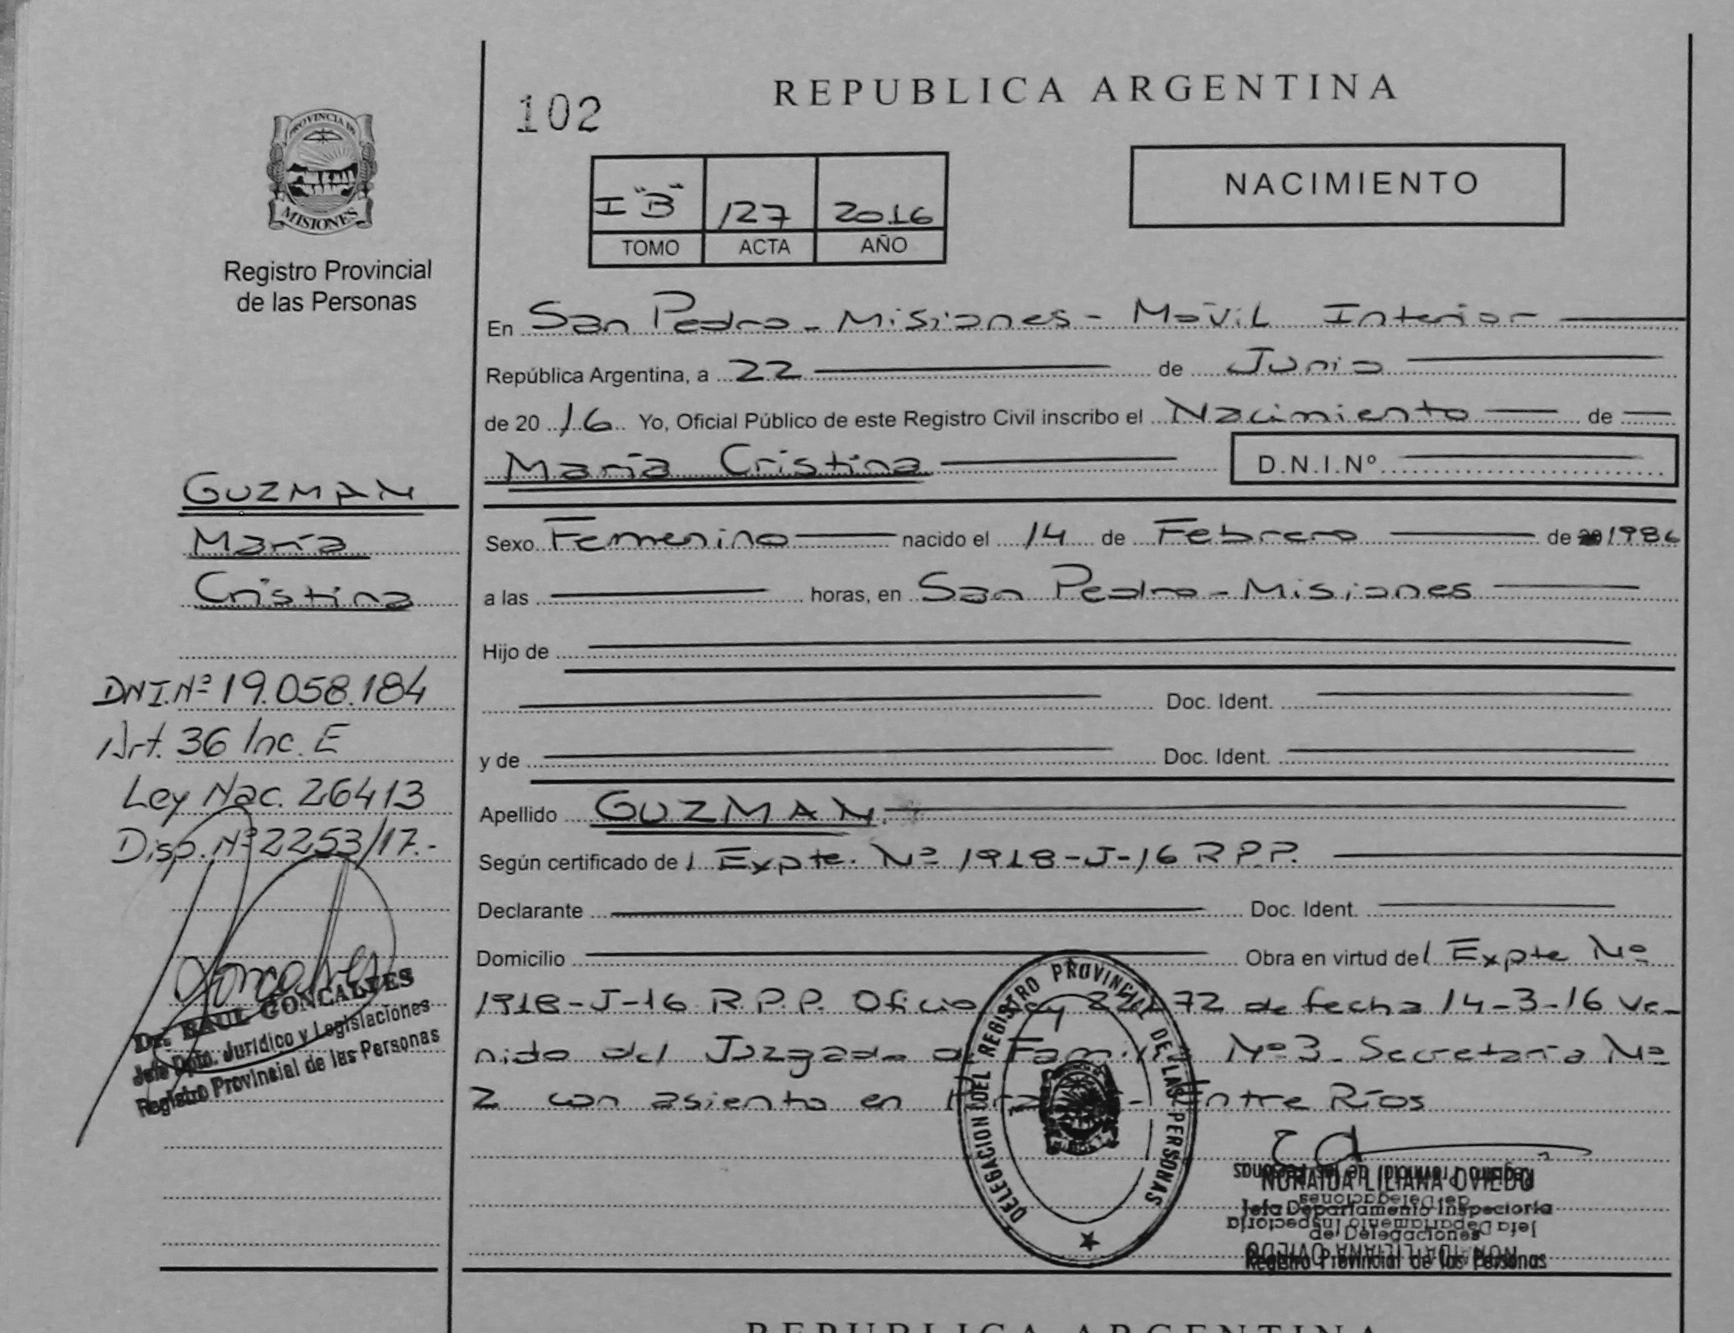 102
REPUBLICA ARGENTINA
PROVINCIA DE
MISIONES
Registro Provincial
de las Personas
I "B" 127 2016
TOMO ACTA AÑO
NACIMIENTO
En San Pedro - Misiones - Movil Interior
República Argentina, a 22 de Junio
de 20 16 Yo, Oficial Público de este Registro Civil inscribo el Nacimiento de
María Cristina D.N.I.Nº
GUZMAN
María
Cristina
DNI.Nº 19.058.184
Art. 36 Inc. E
Ley Nac. 26413
Disp. Nº 2253/17.-
Dr. RAUL GONCALVES
Jefe Dpto. Jurídico y Legislaciones
Registro Provincial de las Personas
Sexo Femenino nacido el 14 de Febrero de 1986
a las horas, en San Pedro - Misiones
Hijo de
Doc. Ident.
y de Doc. Ident.
Apellido GUZMAN.
Según certificado de l Expte. Nº 1918-J-16 R.P.P.
Declarante Doc. Ident.
Domicilio Obra en virtud de l Expte Nº
1918-J-16 R.P.P. Oficio 72 de fecha 14-3-16 Ve-
nido del Juzgado de Familia Nº 3 - Secretaría Nº
2 con asiento en - Entre Ríos
DELEGACION DEL REGISTRO PROVINCIAL DE LAS PERSONAS
NORAIDA LILIANA OVIEDO
Jefa Departamento Inspectoría
de Delegaciones
Registro Provincial de las Personas
REPUBLICA ARGENTINA